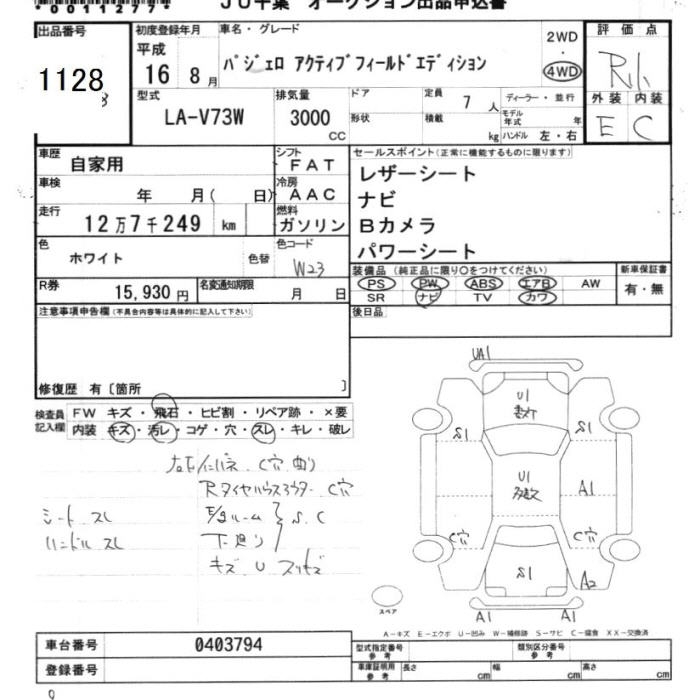 *0011277*
JU千葉 オークション出品申込書
出品番号
1128
初度登録年月
平成
16 8月
車名・グレード
パジェロ アクティブフィールドエディション
2WD
・
4WD
評価点
R1
型式
LA-V73W
排気量
3000
CC
ドア
定員
7 人
形状
積載
kg
ディーラー・並行
モデル年式 年
ハンドル 左・右
外装 内装
E C
車歴
自家用
シフト
FAT
車検
年 月( 日)
冷房
AAC
走行
12万7千249 km
燃料
ガソリン
セールスポイント(正常に機能するものに限ります)
レザーシート
ナビ
Bカメラ
パワーシート
色
ホワイト
色替
色コード
W23
装備品(純正品に限り〇をつけてください)
PS PW ABS エアB AW
SR ナビ TV カワ
新車保証書
有・無
R券
15,930円
名変通知期限
月 日
後日品
注意事項申告欄(不具合内容等は具体的に記入して下さい)
修復歴 有〔箇所 〕
検査員記入欄
FW キズ・飛石・ヒビ割・リペア跡・×要
内装 キズ・汚レ・コゲ・穴・スレ・キレ・破レ
C穴 曲り
Rタイヤハウスアウター C穴
シート スレ
ハンドル スレ
E/gルーム
下廻り
S.C
キズ U
UA1
U1
S1
S1
U1
A1
C穴
C穴
S1
A2
A1
A1
スペア
A-キズ E-エクボ U-凹み W-補修跡 S-サビ C-腐食 XX-交換済
車台番号
0403794
登録番号
型式指定番号
参考
類別区分番号
参考
車庫証明用
参考
長さ cm
幅 cm
高さ cm